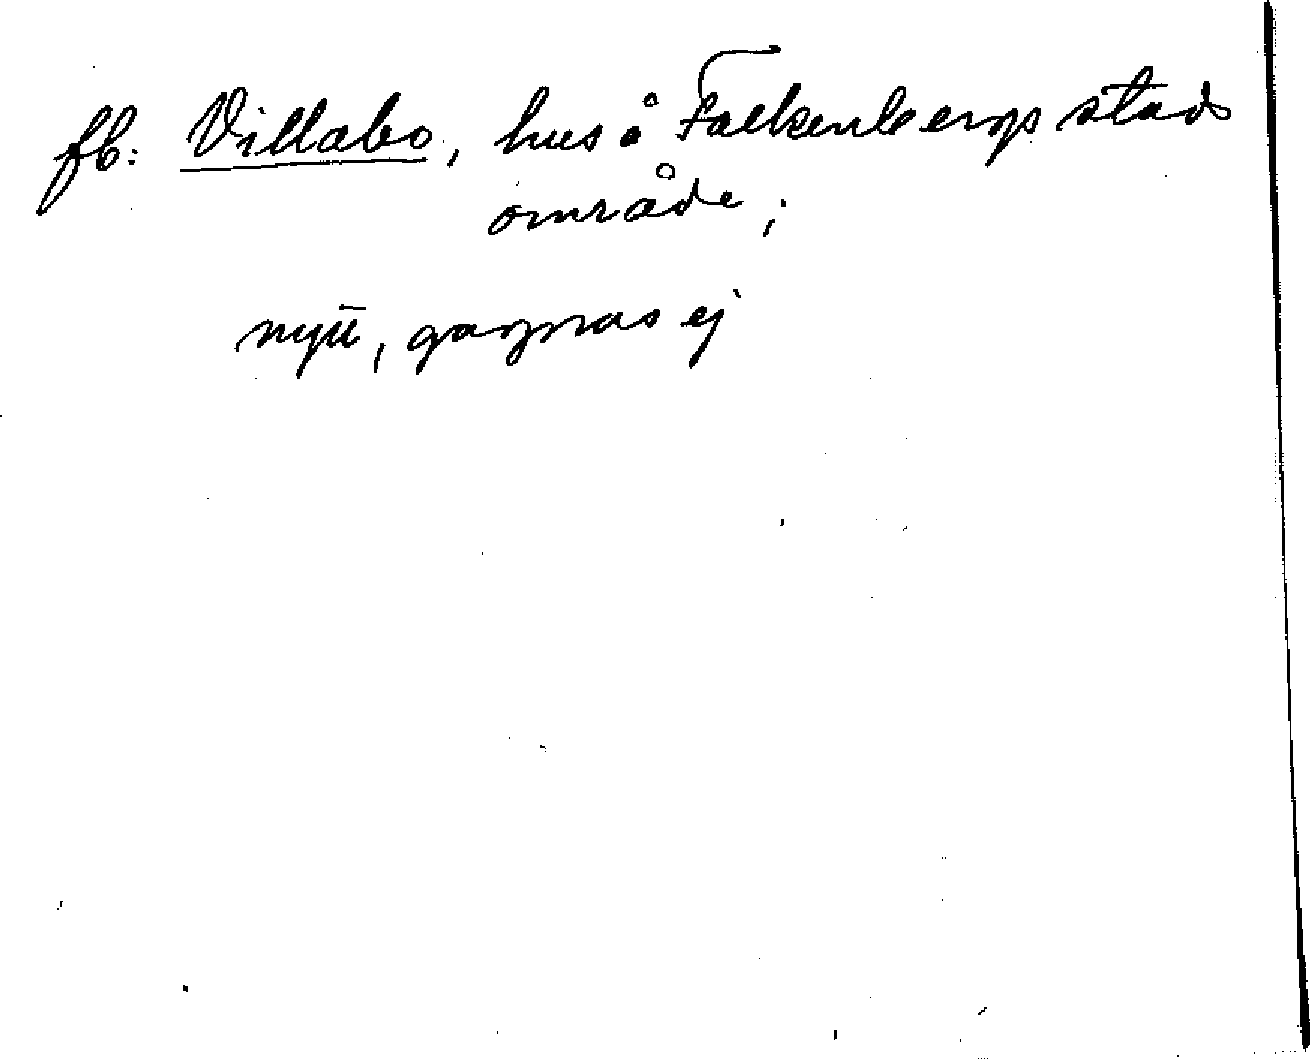 fb: Villabo, hus å Falkenbergs stads
område;
nyū, gagnas ej